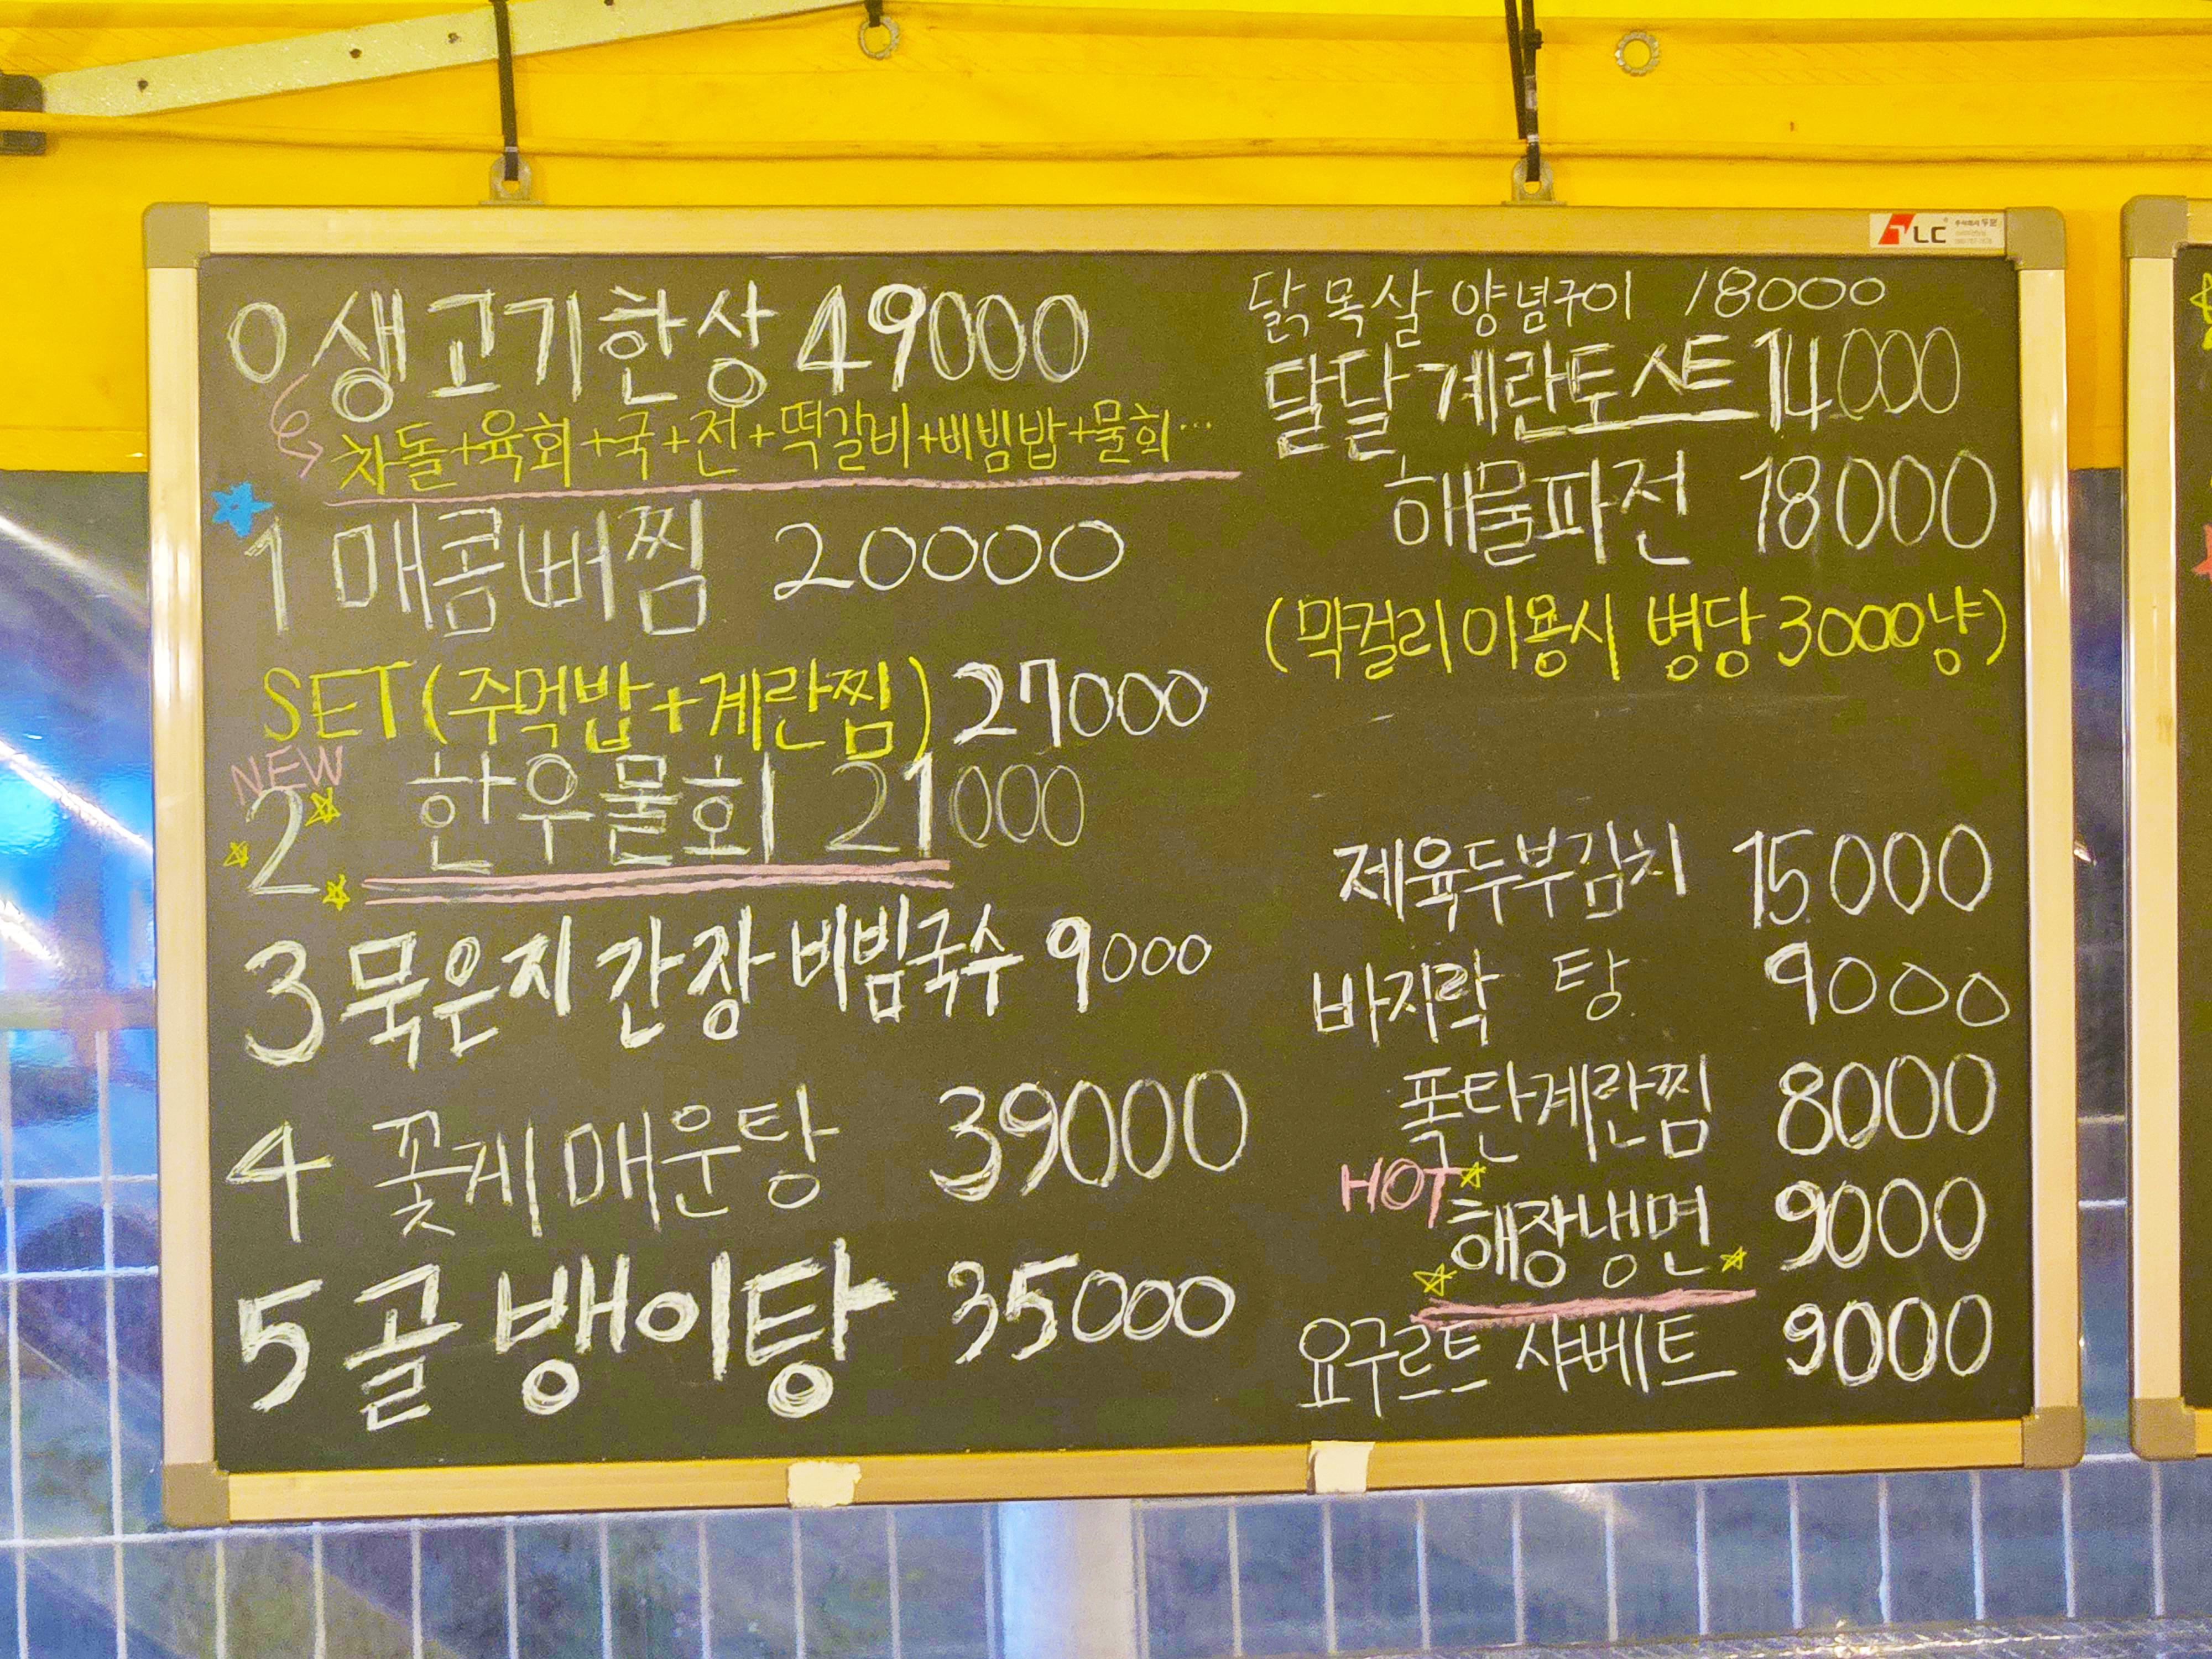 0 생고기한상 49000
차돌+육회+국+전+떡갈비+비빔밥+물회...
1 매콤버찜 20000
SET (주먹밥+계란찜) 27000
NEW
2 한우물회 21000
3 묵은지 간장 비빔국수 9000
4 꽃게매운탕 39000
5 골뱅이탕 35000
TLC
닭목살 양념구이 18000
달달 계란토스트 14000
해물파전 18000
(막걸리 이용시 병당 3000냥)
제육두부김치 15000
바지락 탕 9000
폭탄계란찜 8000
HOT
해장냉면 9000
요구르트 샤베트 9000